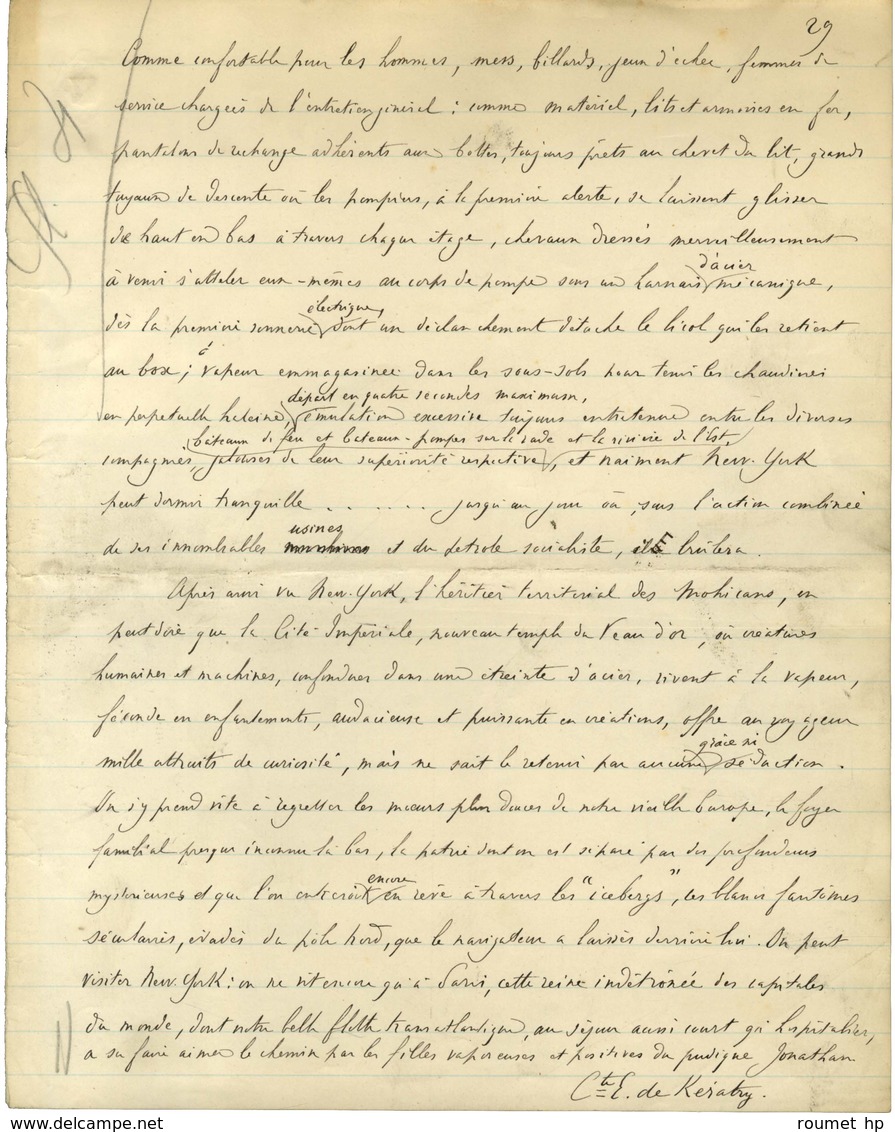 29
Comme confortable pour les hommes, mess, billards, jeux d'échec, femmes de
service chargées de l'entretien général : comme matériel, lits et armoires en fer,
pantalons de rechange adhérents aux bottes, toujours prêts au chevet du lit, grands
tuyaux de descente où les pompiers, à la première alerte, se laissent glisser
de haut en bas à travers chaque étage, chevaux dressés merveilleusement
d'acier
à venir s'atteler eux-mêmes au corps de pompe sous un harnais mécanique,
électrique,
dès la première sonnerie dont un déclanchement détache le licol qui les retient
au box ; vapeur emmagasinée dans les sous-sols pour tenir les chaudières
départ en quatre secondes maximum,
en perpetuelle haleine, émulation excessive toujours entretenue entre les diverses
bateaux de feu et bateaux-pompes sur la rade et la rivière de l'Est,
compagnies, jalouses de leur supériorité respective, et vraiment New-York
peut dormir tranquille . . . . . . . jusqu'au jour où, sous l'action combinée
usines
de ses innombrables et du pétrole socialiste, il brûlera.
Après avoir vu New-York, l'héritier territorial des Mohicans, on
peut dire que la Cité Impériale, nouveau temple du Veau d'or, où créatures
humaines et machines, confondues dans une étreinte d'acier, vivent à la vapeur,
féconde en enfantements, audacieuse et puissante en créations, offre au voyageur
grâce ni
mille attraits de curiosité, mais ne sait le retenir par aucune séduction.
On s'y prend vite à regretter les mœurs plus douces de notre vieille Europe, le foyer
familial presque inconnu là bas, la patrie dont on est séparé par des profondeurs
encore
mystérieuses et que l'on entrevoit en rêve à travers les "icebergs", ces blancs fantômes
séculaires, évadés du pôle Nord, que le navigateur a laissés derrière lui. On peut
visiter New-York : on ne vit encore qu'à Paris, cette reine indétrônée des capitales
du monde, dont notre belle flotte transatlantique, au séjour aussi court qu'hospitalier,
a su faire aimer le chemin par les filles vaporeuses et positives du pudique Jonathan
Cte E. de Kératry.
roumet hp